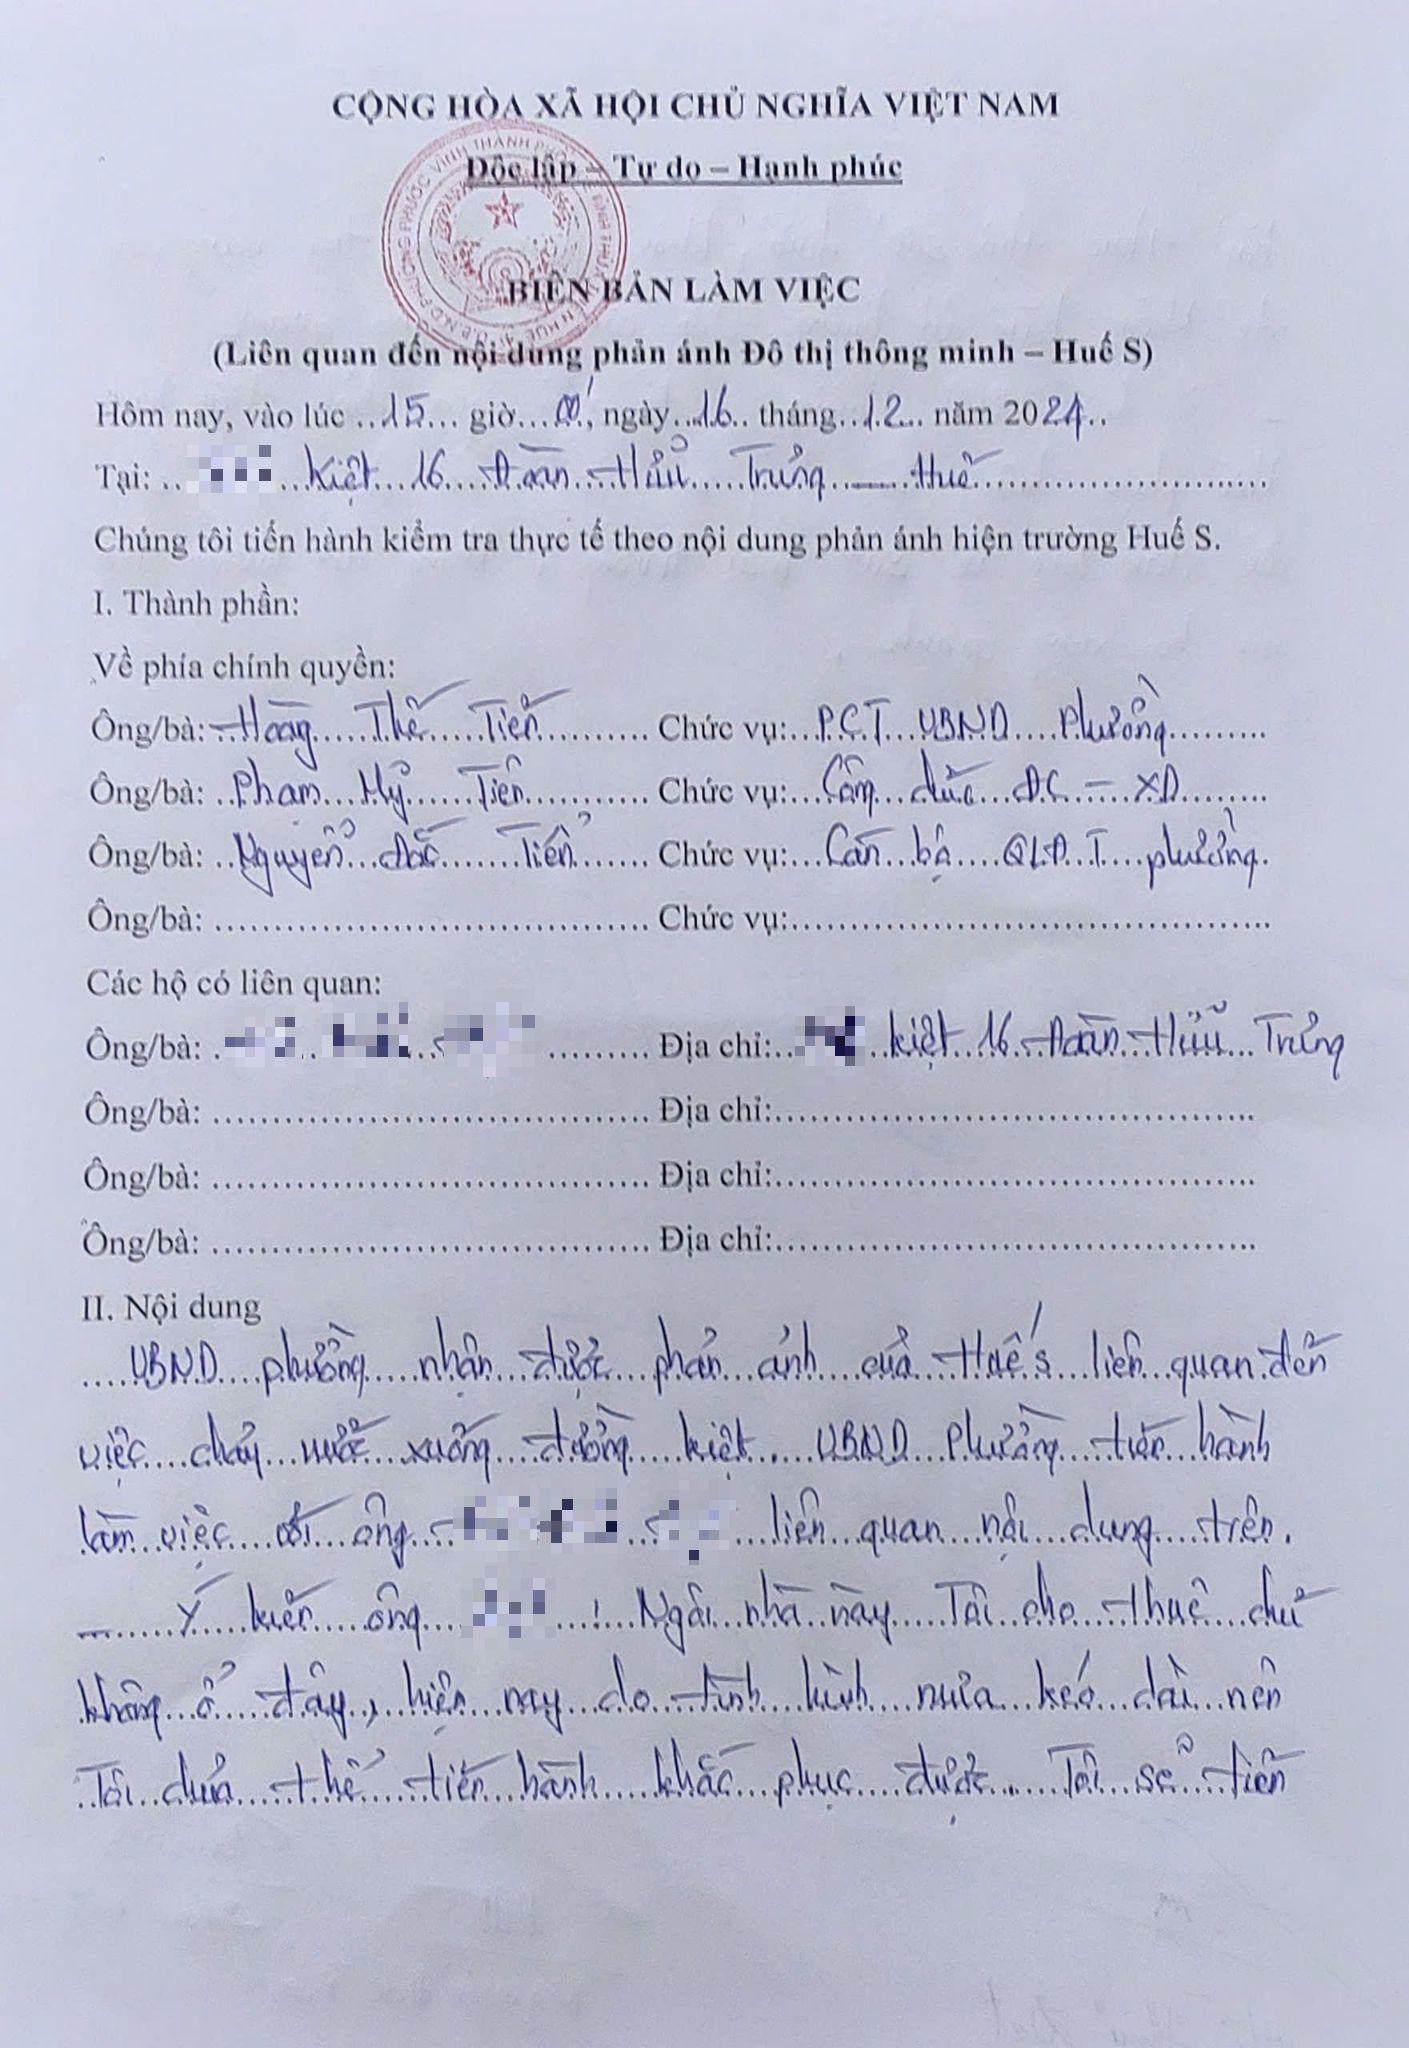 CỘNG HÒA XÃ HỘI CHỦ NGHĨA VIỆT NAM
Độc lập – Tự do – Hạnh phúc
BIÊN BẢN LÀM VIỆC
(Liên quan đến nội dung phản ánh Đô thị thông minh – Huế S)
Hôm nay, vào lúc 15 giờ 00', ngày 16 tháng 12 năm 2024
Tại: Kiệt 16 Đoàn Hữu Trưng – Huế
Chúng tôi tiến hành kiểm tra thực tế theo nội dung phản ánh hiện trường Huế S.
I. Thành phần:
Về phía chính quyền:
Ông/bà: Hoàng Thế Tiến Chức vụ: P.CT UBND Phường
Ông/bà: Phạm Mỹ Tiên Chức vụ: Công chức ĐC – XD
Ông/bà: Nguyễn Đắc Tiến Chức vụ: Cán bộ QLĐT phường
Ông/bà: Chức vụ:
Các hộ có liên quan:
Ông/bà: Địa chỉ: kiệt 16 Đoàn Hữu Trưng
Ông/bà: Địa chỉ:
Ông/bà: Địa chỉ:
Ông/bà: Địa chỉ:
II. Nội dung
UBND phường nhận được phản ánh của Huế S liên quan đến
việc chảy nước xuống đường kiệt. UBND Phường tiến hành
làm việc với ông liên quan nội dung trên.
Ý kiến ông : Ngôi nhà này Tôi cho thuê chứ
không ở đây, hiện nay do tình hình mưa kéo dài nên
Tôi chưa thể tiến hành khắc phục được. Tôi sẽ tiến